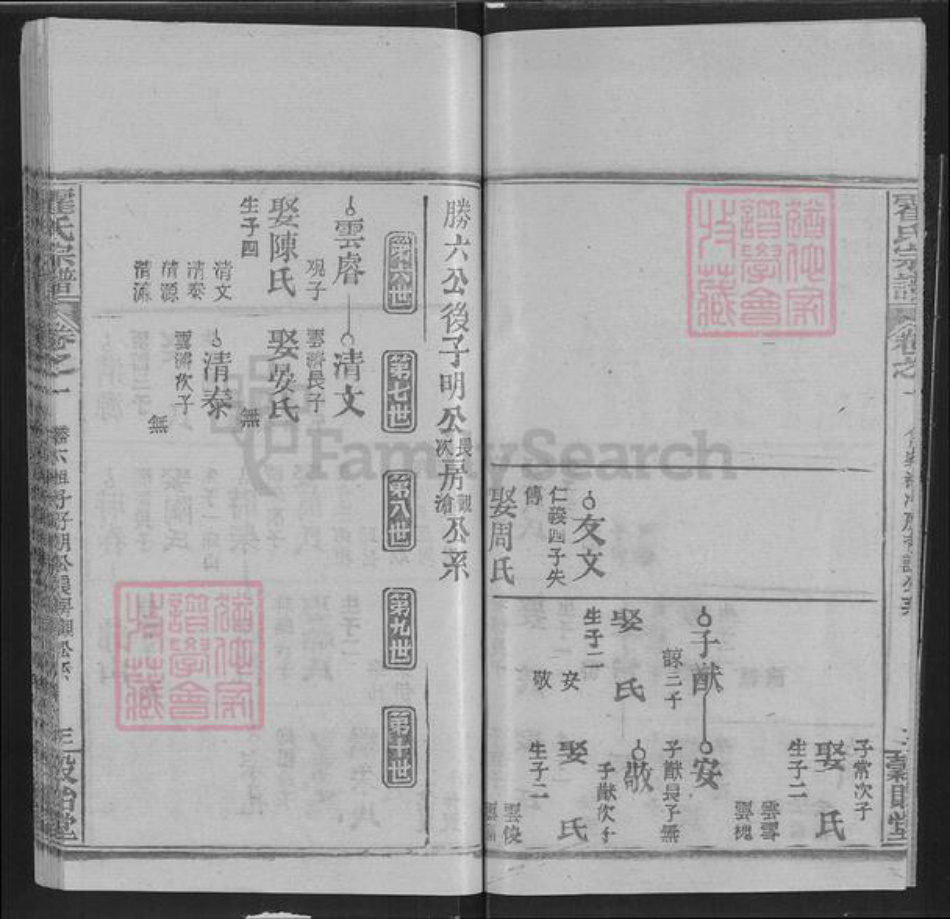 霍氏宗譜
卷之一
子常次子
娶 氏
生子二
雲雪
雲槐
子猷
諒三子
娶 氏
生子二
安
敬
安
子猷長子無
敬
子猷次子
娶 氏
生子二
雲俊
友文
仁義四子失
傳
娶周氏
勝六公後子明公長次房觀滄公系
第六世
第七世
第八世
第九世
第十世
雲睿
觀子
娶陳氏
生子四
清文
清泰
清源
清濂
清文
雲濟長子
娶晏氏
無
清泰
雲濟次子
無
霍氏宗譜
卷之一
FamilySearch